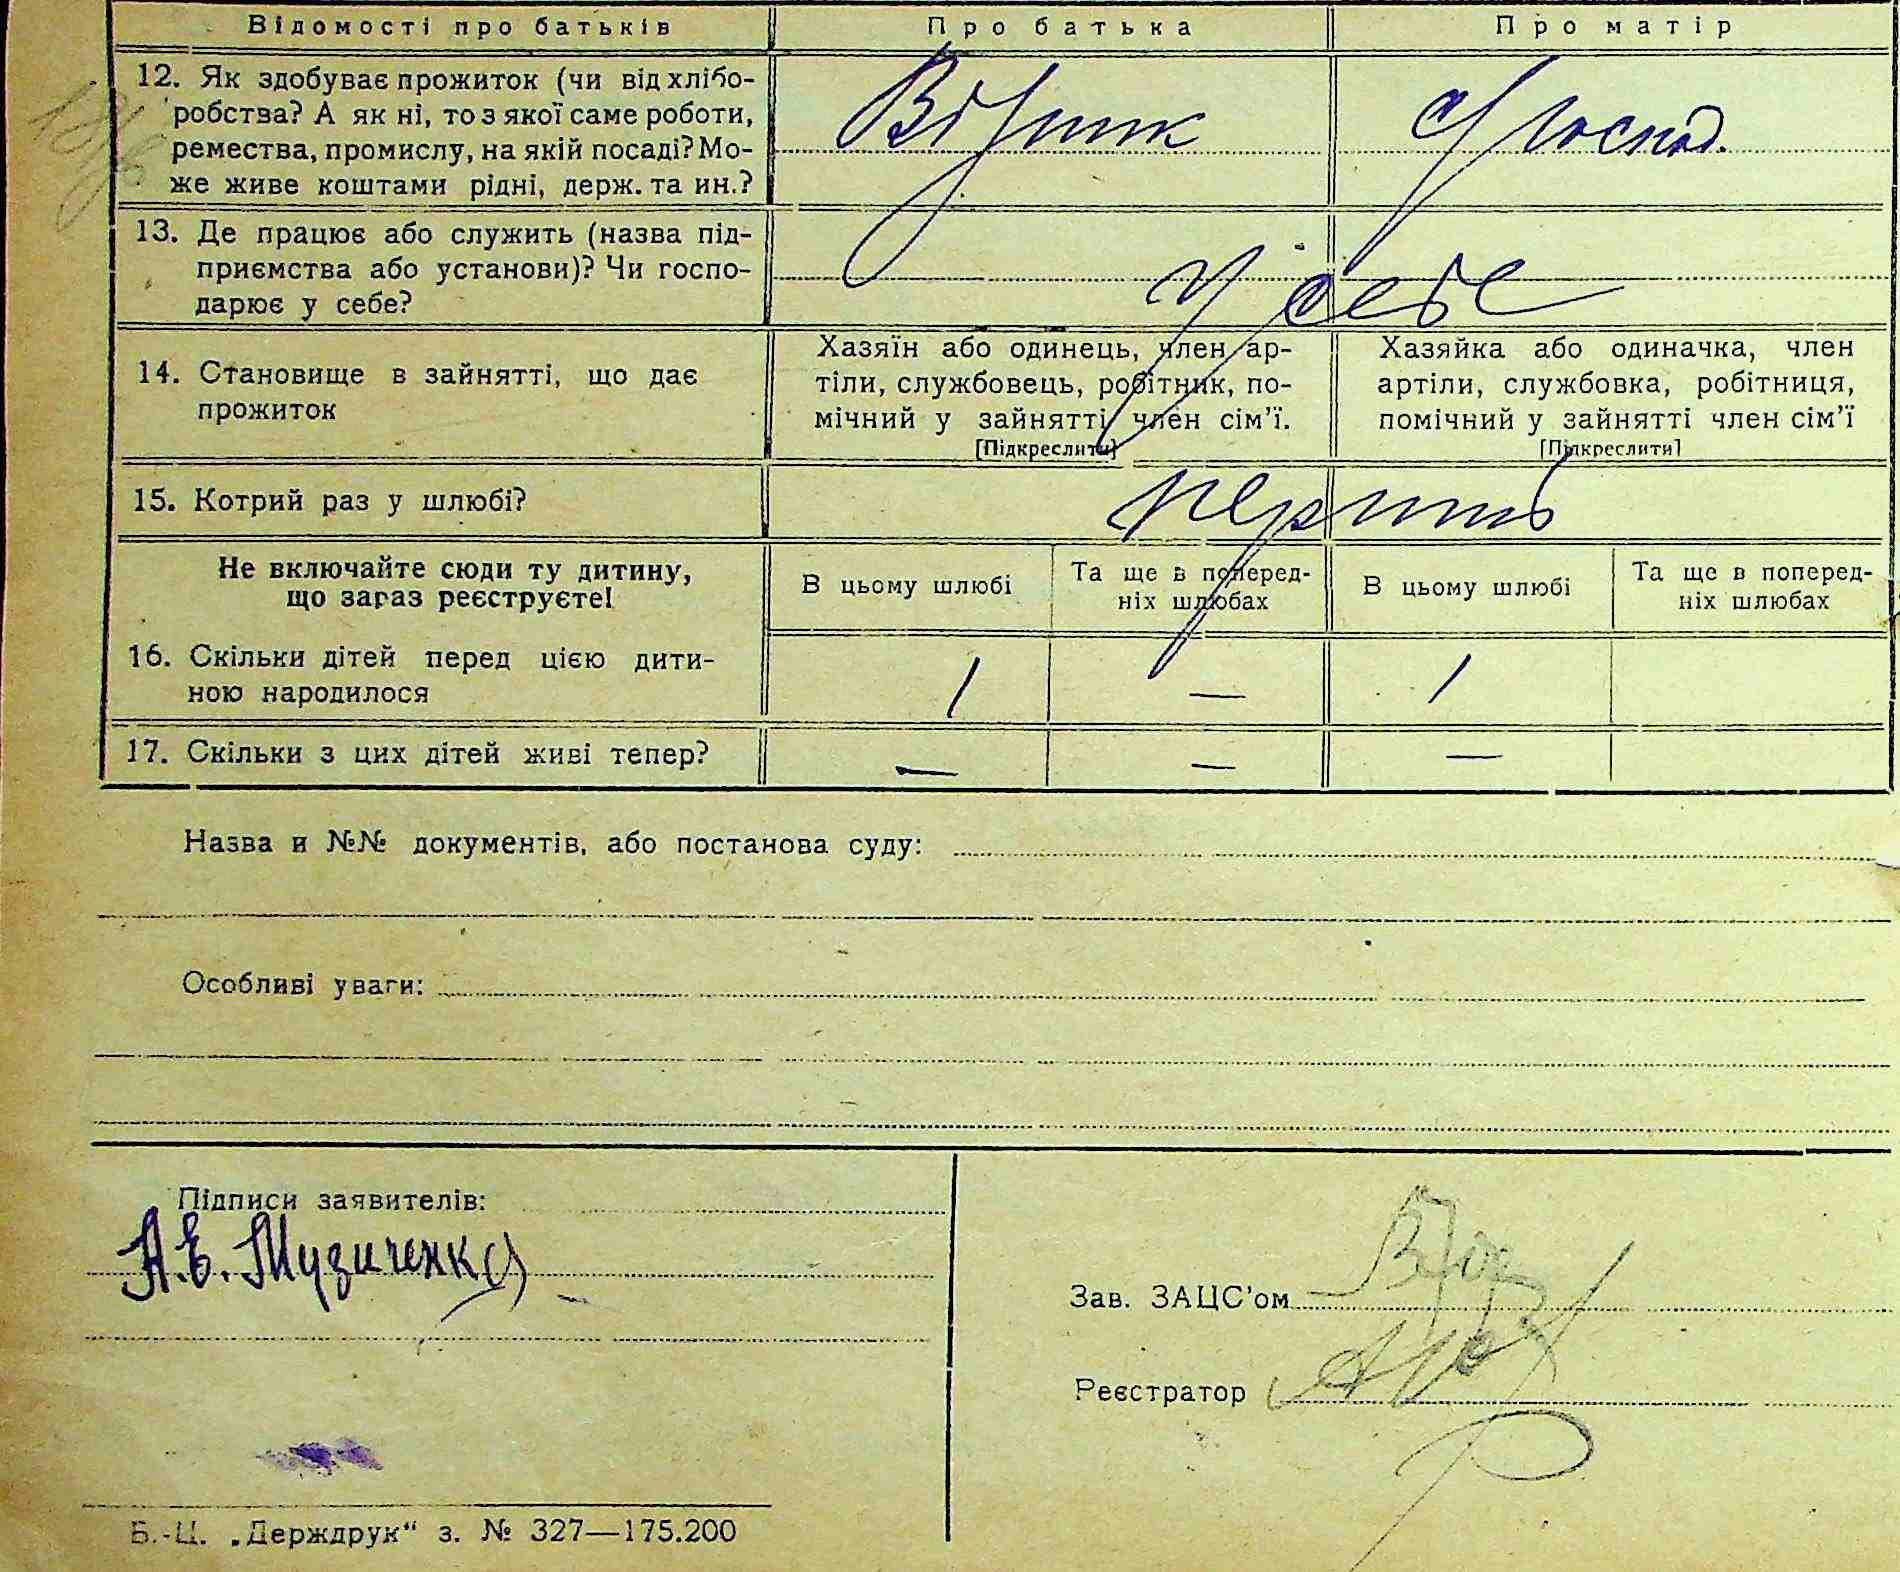 Відомості про батьків Про батька Про матір
12. Як здобуває прожиток (чи від хлібо-
робства? А як ні, то з якої саме роботи,
ремества, промислу, на якій посаді? Мо-
же живе коштами рідні, держ. та ин.?
Візник
д/господ.
13. Де працює або служить (назва під-
приємства або установи)? Чи госпо-
дарює у себе?
У себе
14. Становище в зайнятті, що дає
прожиток
Хазяїн або одинець, член ар-
тіли, службовець, робітник, по-
мічний у зайнятті член сім'ї.
[Підкреслити]
Хазяйка або одиначка, член
артіли, службовка, робітниця,
помічний у зайнятті член сім'ї
[Підкреслити]
15. Котрий раз у шлюбі?
перший
Не включайте сюди ту дитину,
що зараз реєструєте!
В цьому шлюбі
Та ще в поперед-
ніх шлюбах
В цьому шлюбі
Та ще в поперед-
ніх шлюбах
16. Скільки дітей перед цією дити-
ною народилося
1 — 1
17. Скільки з цих дітей живі тепер?
— — —
Назва и №№ документів, або постанова суду:
Особливі уваги:
Підписи заявителів:
А.Е. Музиченко
Зав. ЗАЦС'ом
Реєстратор
Б.-Ц. „Держдрук“ з. № 327—175.200